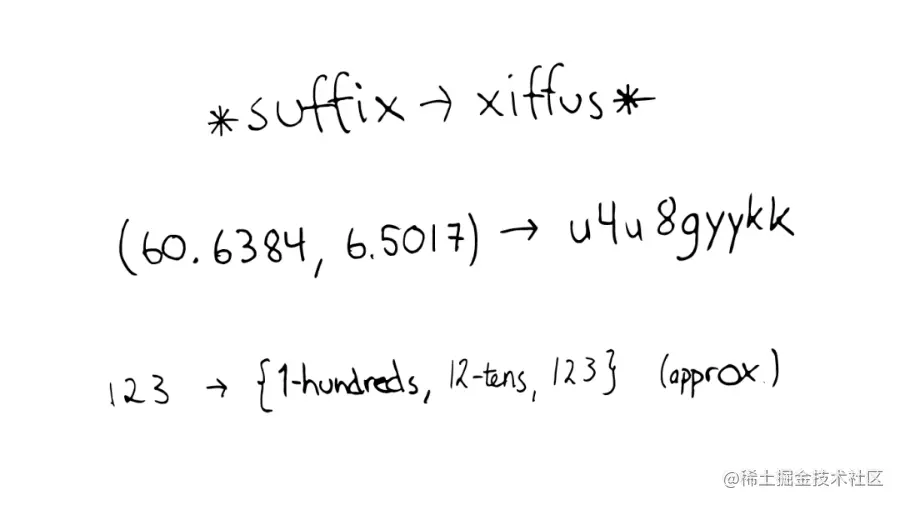 *suffix → xiffus*
(60.6384, 6.5017) → u4u8gyykk
123 → {1-hundreds, 12-tens, 123} (approx.)
@稀土掘金技术社区